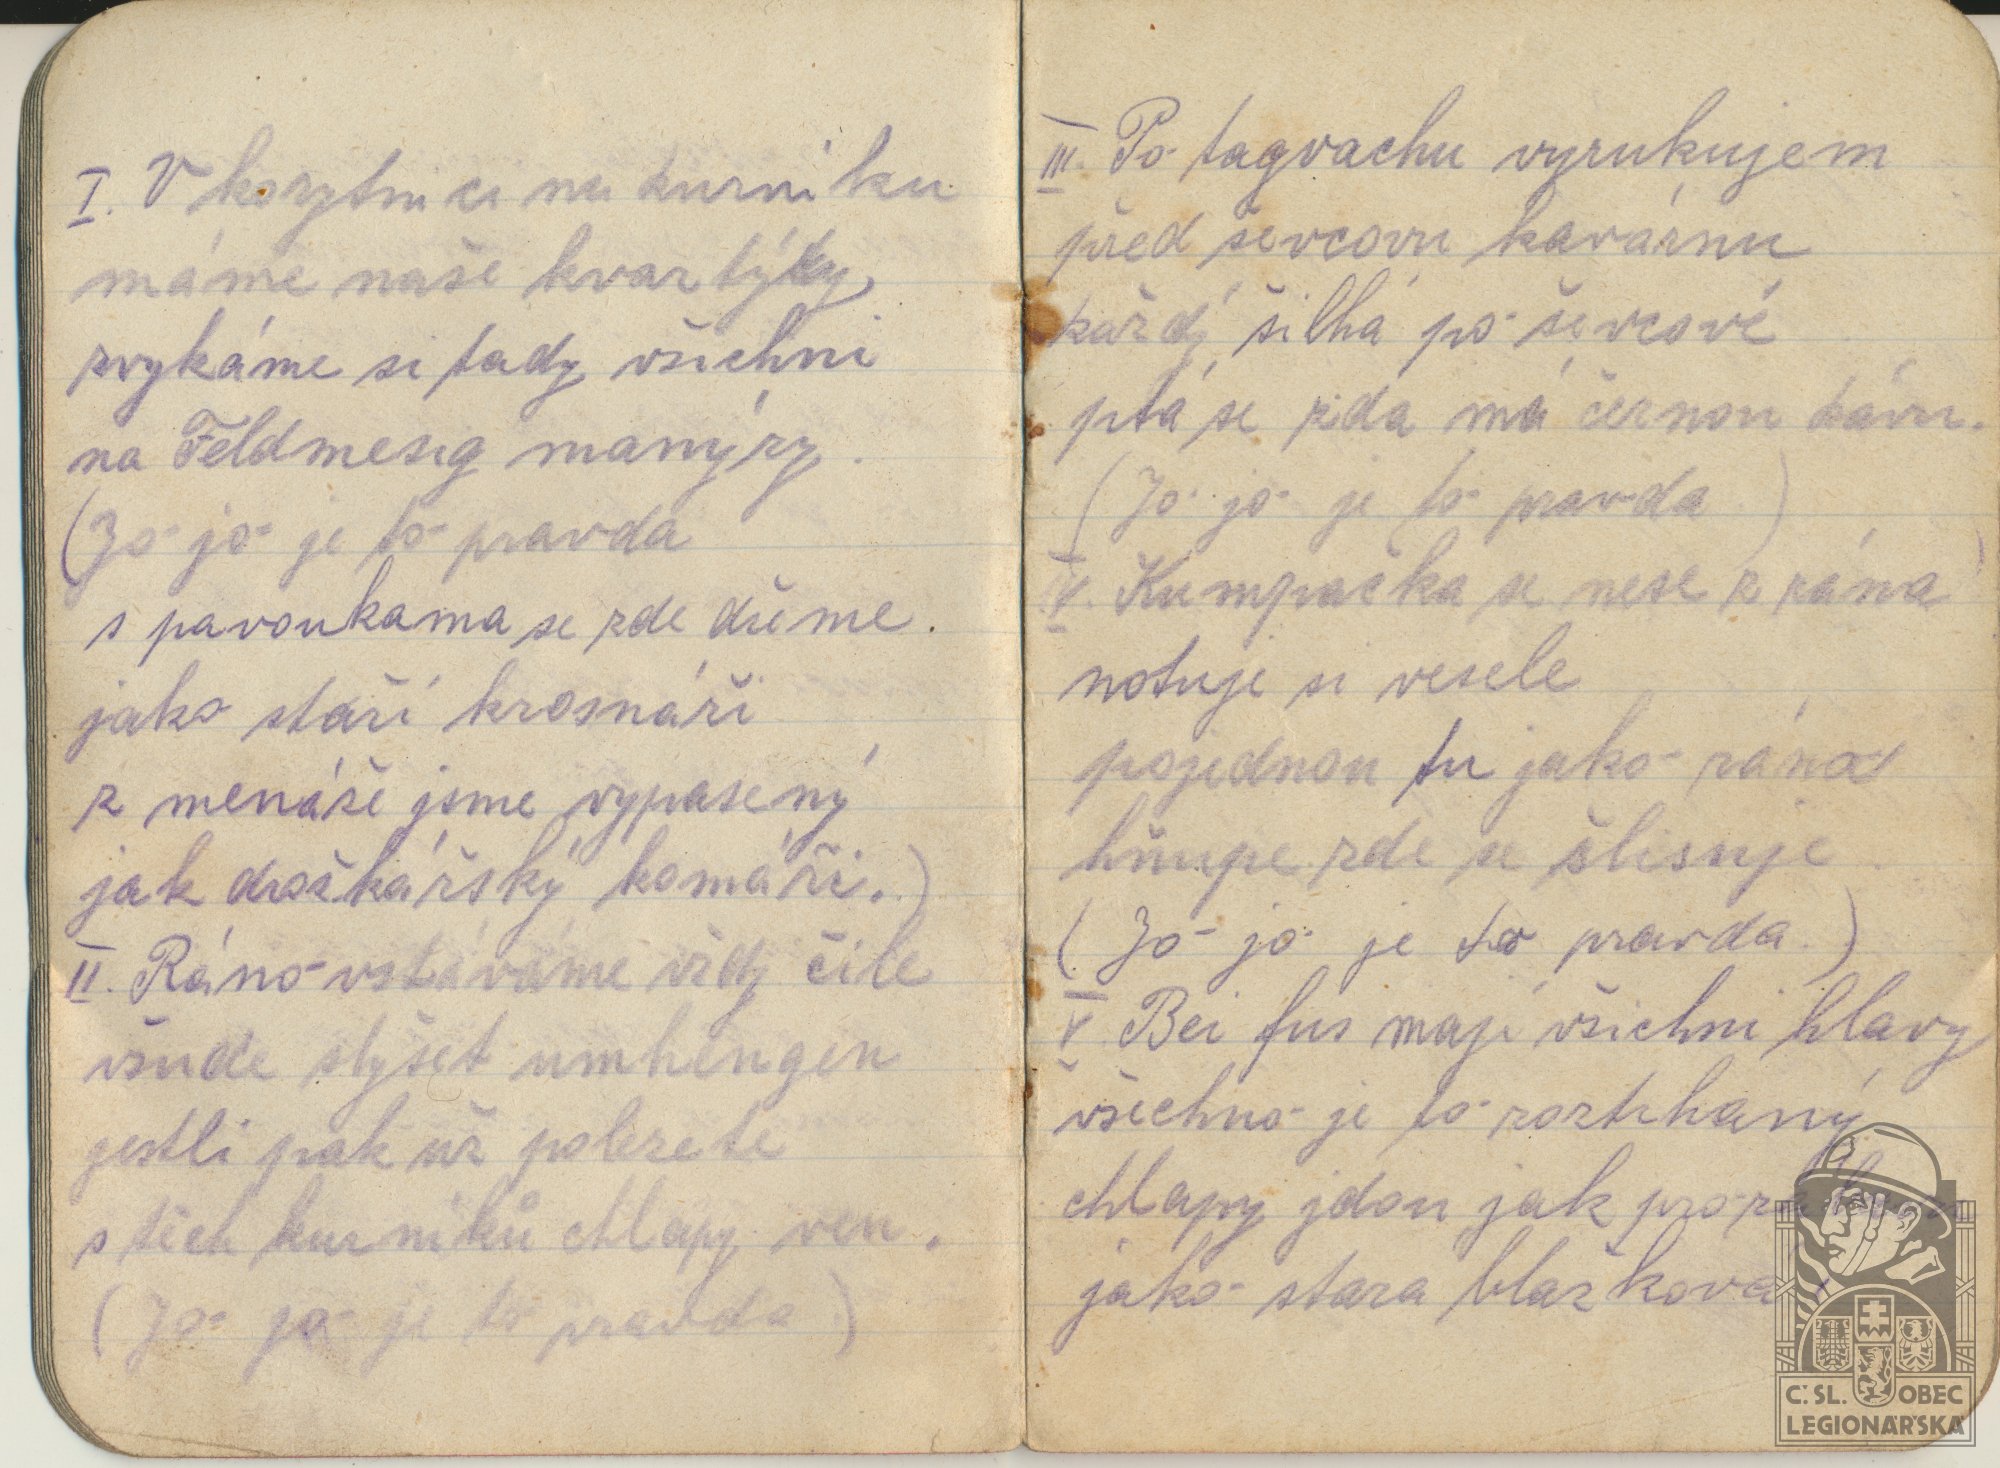 I. V korytnici na kurníku
máme naše kvartýry
zvykáme si tady všichni
na Feldmesig manýry.
(Jo jo je to pravda
s pavoukama se zde dřeme.
jako staří krosnáři
z menáže jsme vypasený
jak doškářský komáři.)
II. Ráno vstáváme vždy čile
všude slyšet umhengen
jestli pak už polezete
s těch kurníků chlapy ven.
(Jo jo je to pravda)
III. Po tagvachu vyrukujem
před ševcovu kavárnu
každý šilhá po ševcové
ptá se zda má černou kávu.
(Jo jo je to pravda)
IV. Kumpačka se nese z rána
notuje si vesele
pojednou tu jako ráno
hňupe zde se šlisuje.
(Jo jo je to pravda.)
V. Bei fus mají všichni hlavy
všechno je to roztrhaný
chlapy jdou jak
jako stara blažkova
Č. SL. OBEC
LEGIONÁŘSKÁ